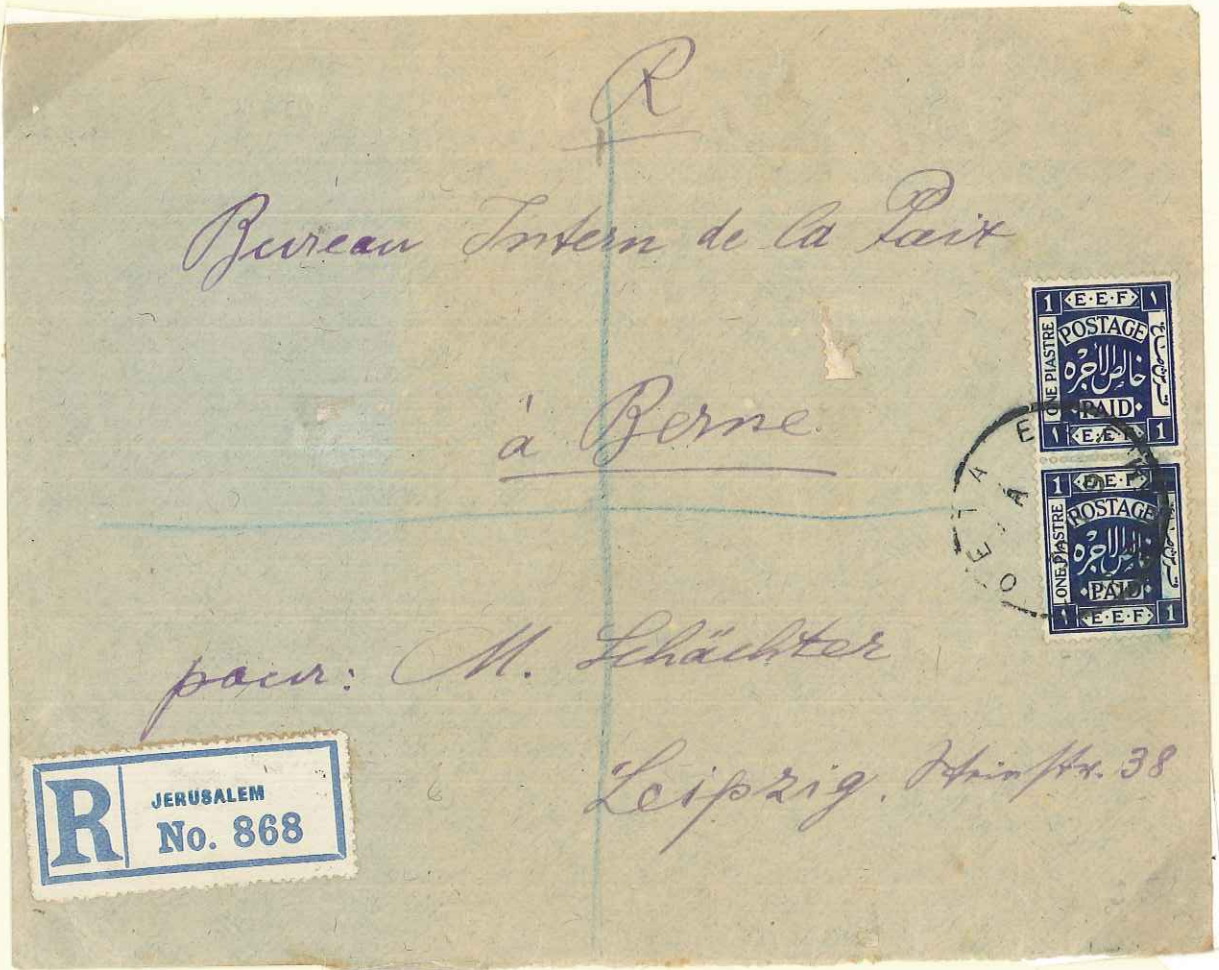 R
Bureau Intern de la Paix
à Berne
pour: M. Schächter
Leipzig, Steinstr. 38
1 E·E·F ١
ONE PIASTRE
POSTAGE
خالص الأجرة
PAID
١ E·E·F 1
1 E·E·F ١
ONE PIASTRE
POSTAGE
خالص الأجرة
PAID
١ E·E·F 1
OETA
R
JERUSALEM
No. 868